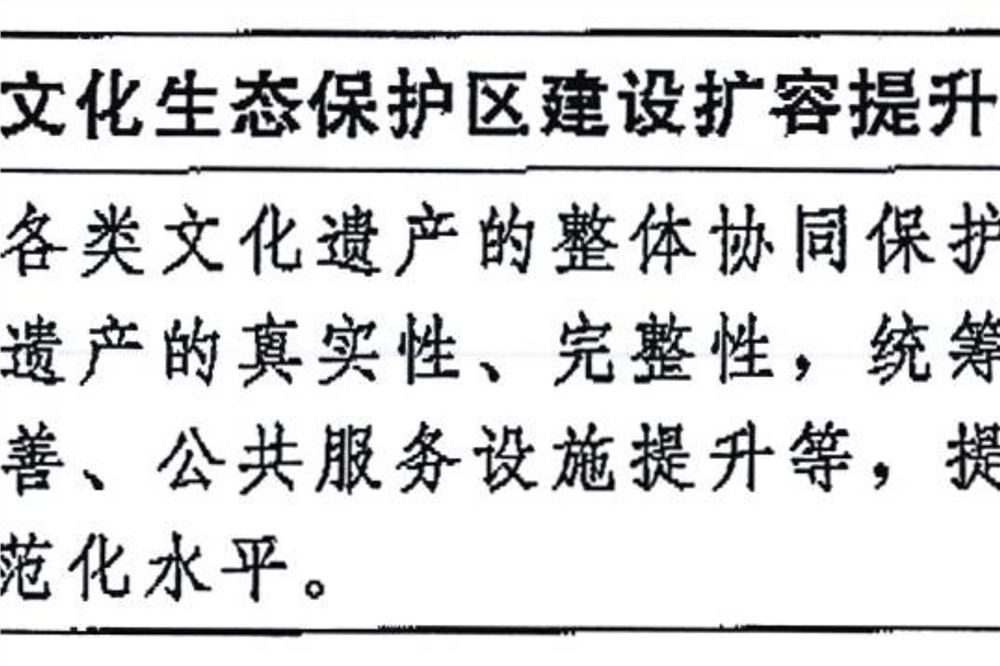 文化生态保护区建设扩容提升
各类文化遗产的整体协同保护
遗产的真实性、完整性，统筹
善、公共服务设施提升等，提
范化水平。